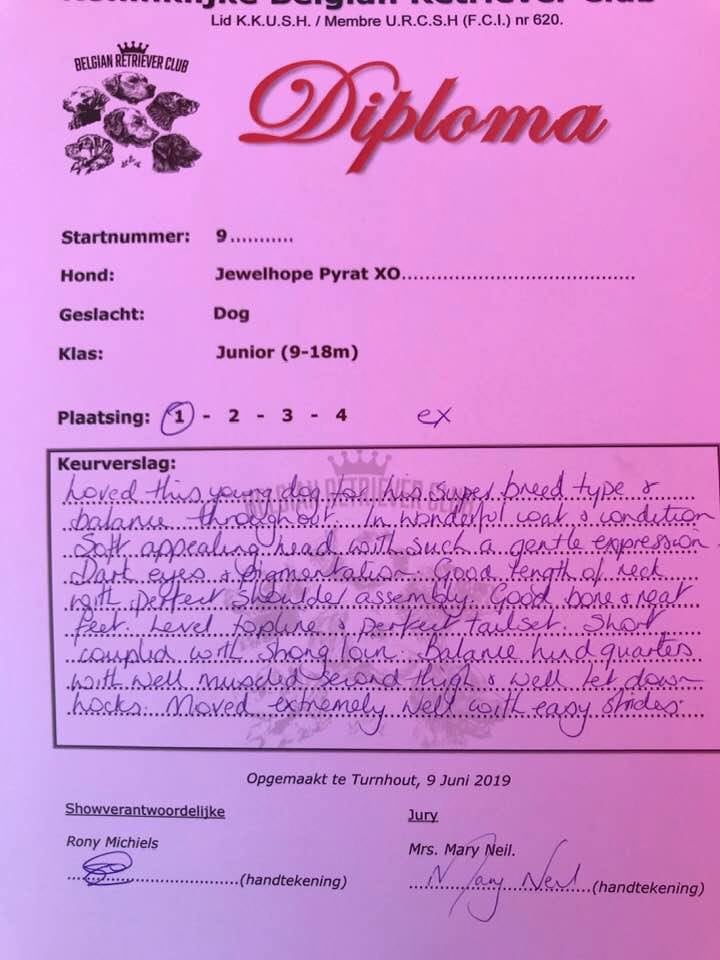 Koninklijke Belgian Retriever Club
Lid K.K.U.S.H. / Membre U.R.C.S.H (F.C.I.) nr 620.
BELGIAN RETRIEVER CLUB
Diploma
Startnummer: 9...........
Hond: Jewelhope Pyrat XO.......................................
Geslacht: Dog
Klas: Junior (9-18m)
Plaatsing: 1 - 2 - 3 - 4 ex
Keurverslag:
BELGIAN RETRIEVER CLUB
Loved this young dog for his super breed type &
balance throughout. In wonderful coat & condition
Soft appealing head with such a gentle expression.
Dark eyes & pigmentation. Good length of neck
with perfect shoulder assembly. Good bone & neat
feet. Level topline & perfect tailset. Short
coupled with strong loin. Balance hind quarters
with well muscled second thigh & well let down
hocks. Moved extremely well with easy strides.
Opgemaakt te Turnhout, 9 Juni 2019
Showverantwoordelijke Jury
Rony Michiels Mrs. Mary Neil.
(handtekening) Mary Neil (handtekening)